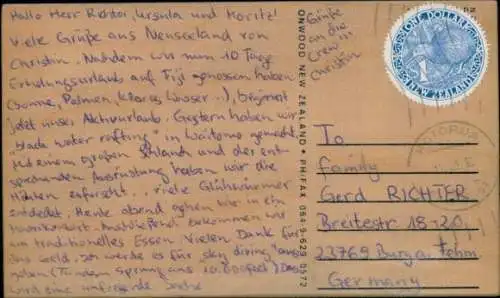 Hallo Herr Richter, Ursula und Moritz!
Viele Grüße aus Neuseeland von
Christin. Nachdem wir nun 10 Tage
Erholungsurlaub auf Fiji genossen haben
(Sonne, Palmen, klares Wasser...), beginnt
jetzt unser Aktivurlaub. Gestern haben wir
"black water rafting" in Waitomo gemacht.
Mit einem großen Schlauch und der ent-
sprechenden Ausrüstung haben wir die
Höhlen erforscht... viele Glühwürmer
entdeckt. Heute abend gehen wir in ein
Maorikonzert. Anschließend bekommen wir
ein traditionelles Essen. Vielen Dank für
das Geld. Ich werde es für "sky diving" aus-
geben (Tandem Sprung aus 10.000 feet) Das
wird eine aufregende Sache
Grüße
an die
Crew
Christin
ONWOOD NEW ZEALAND • PH/FAX 064-9-629 0572
ONE DOLLAR
1
NEW ZEALAND
To
family
Gerd RICHTER
Breitestr 18-20
23769 Burg a. Fehm
Germany